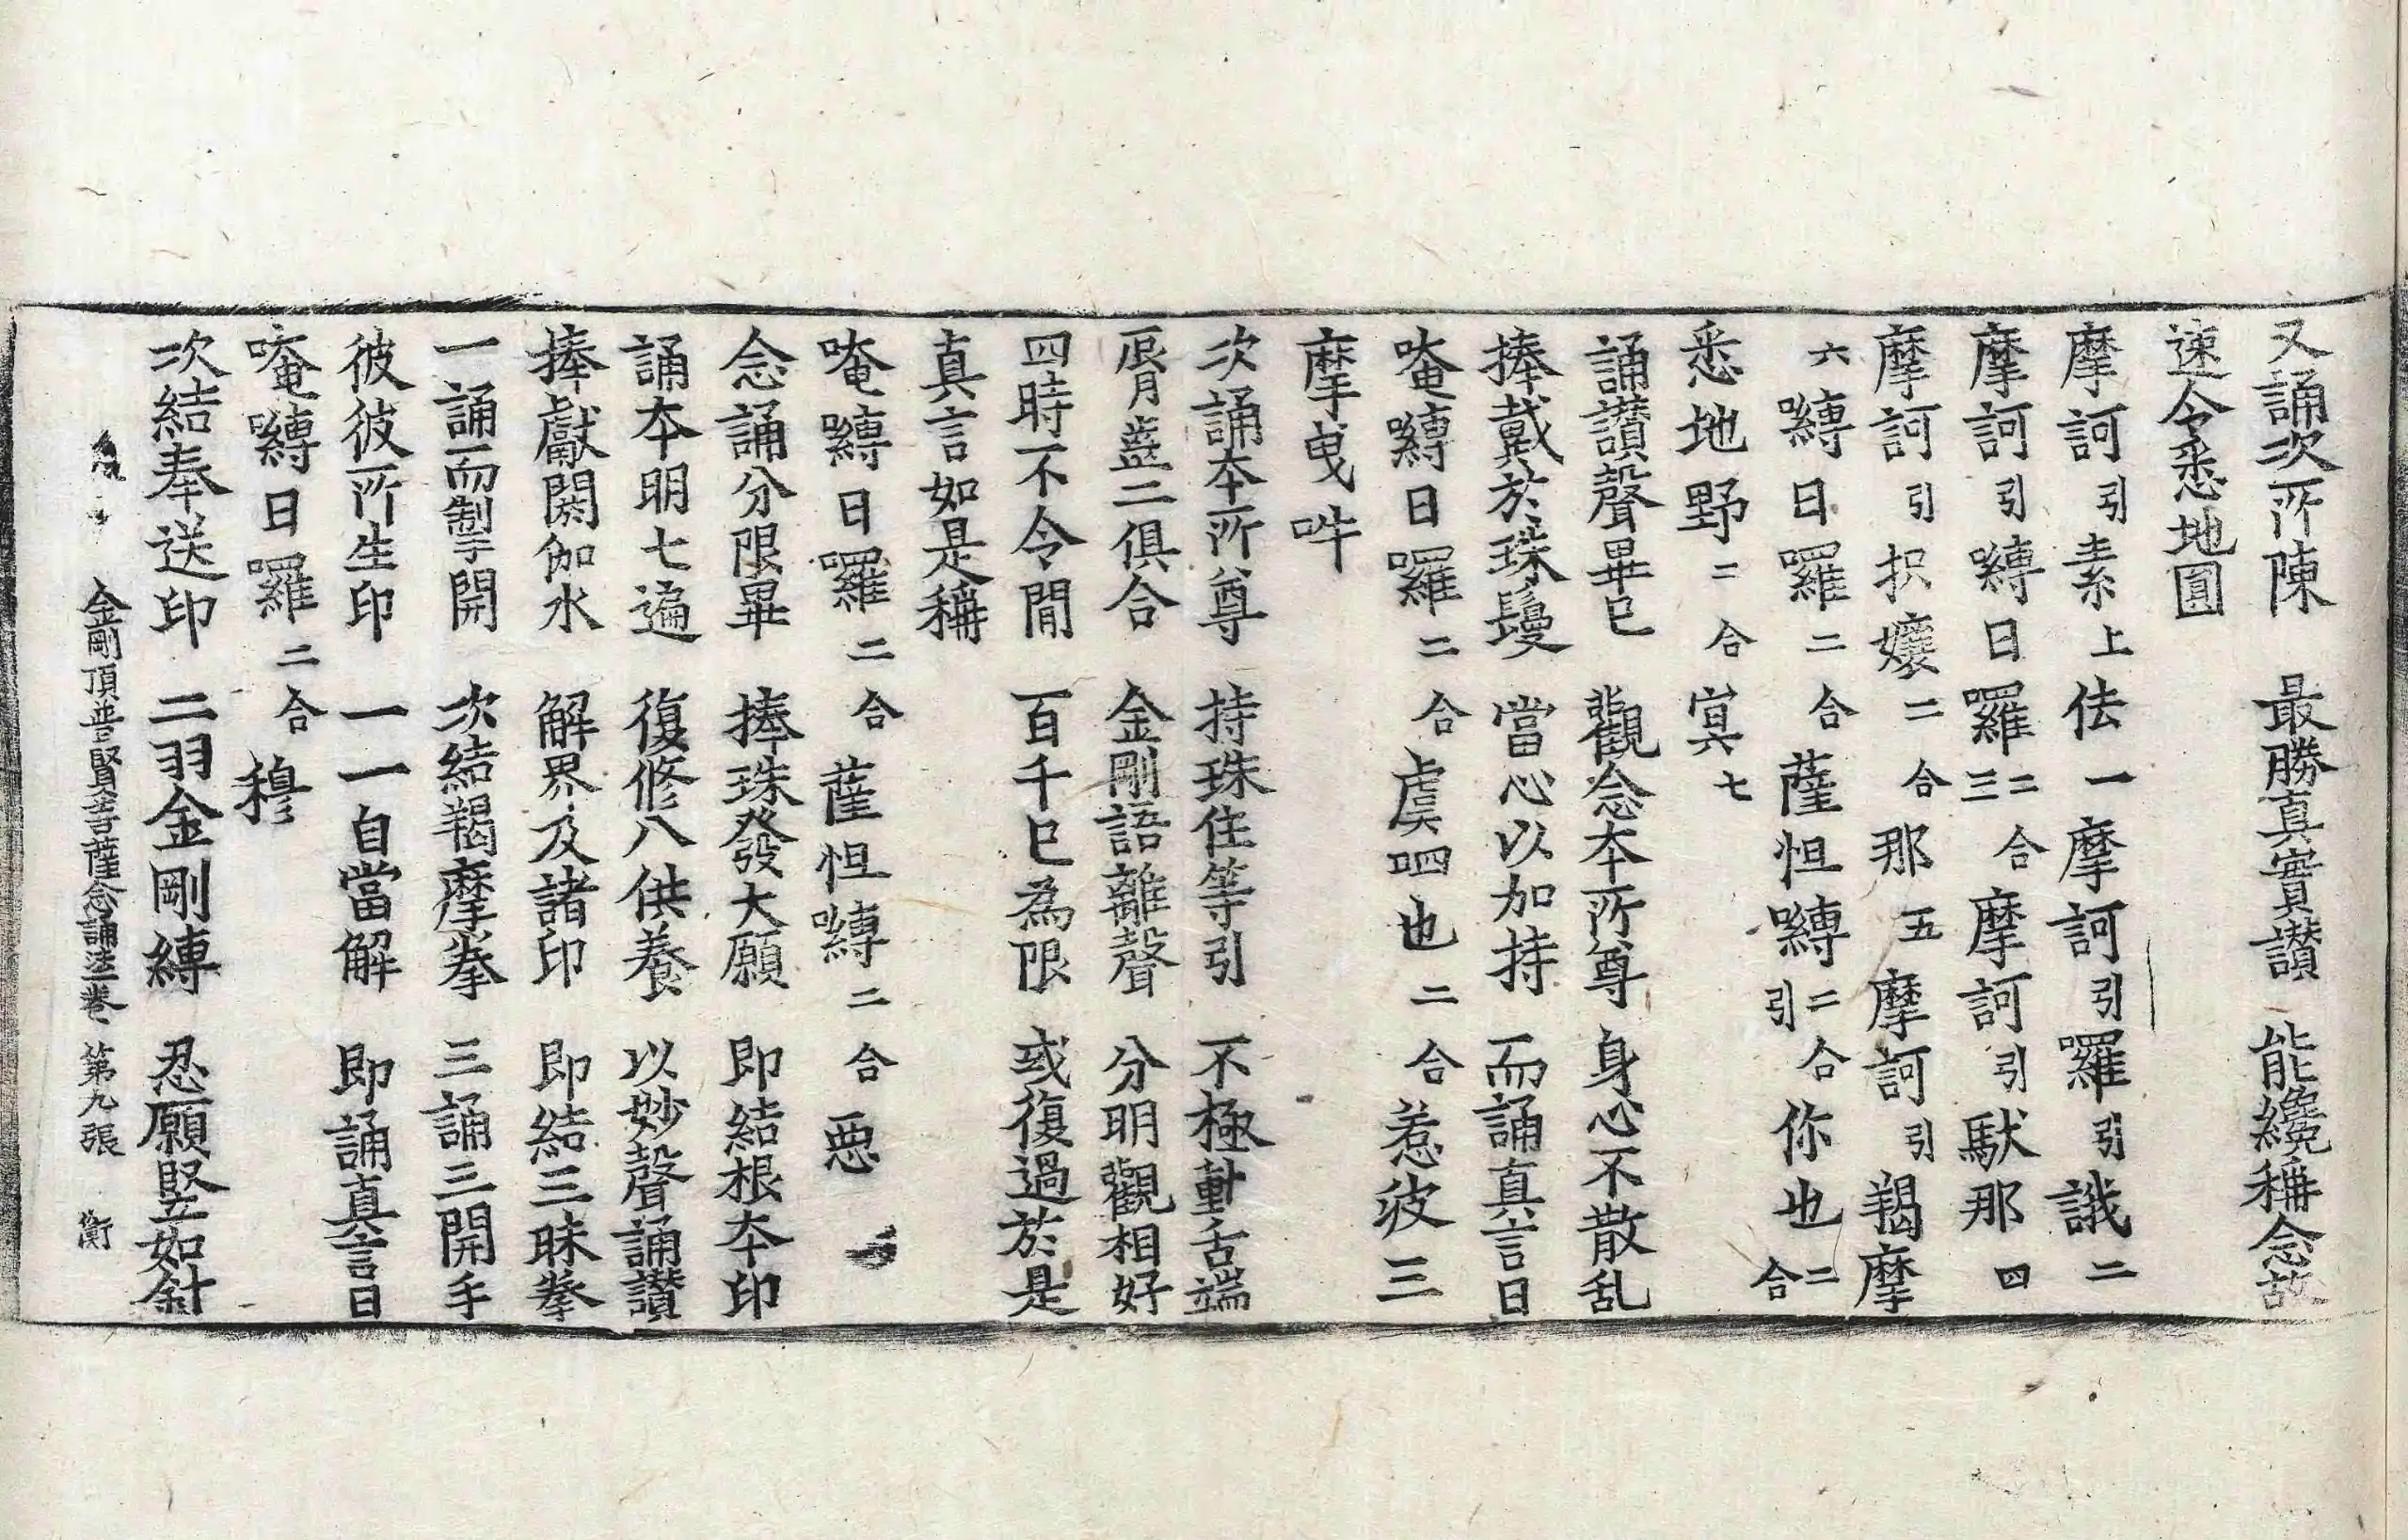 又誦次所陳 最勝真實讃 能纔稱念故
速令悉地圓
摩訶引素上佉一摩訶引羅引誐二
摩訶引嚩日囉二合三摩訶引馱那四
摩訶引枳孃二合那五摩訶引羯摩
六嚩日囉二合薩怛嚩二合引你也二合
悉地野二合寘七
誦讃聲畢已 觀念本所尊 身心不散乱
捧戴於珠鬘 當心以加持 而誦真言曰
唵嚩日囉二合虞呬也二合惹𡛥三
摩曳吽
次誦本所尊 持珠住等引 不極動舌端
脣齒二俱合 金剛語離聲 分明觀相好
四時不令間 百千已為限 或復過於是
真言如是稱
唵嚩日囉二合薩怛嚩二合惡
念誦分限畢 捧珠發大願 即結根本印
誦本明七遍 復修八供養 以妙聲誦讃
捧獻閼伽水 解界及諸印 即結三昧拳
一誦而掣開 次結羯摩拳 三誦三開手
彼彼所生印 一一自當解 即誦真言曰
唵嚩日囉二合穆
次結奉送印 二羽金剛縛 忍願竪如針
金剛頂普賢菩薩念誦法一卷 第九張 衡